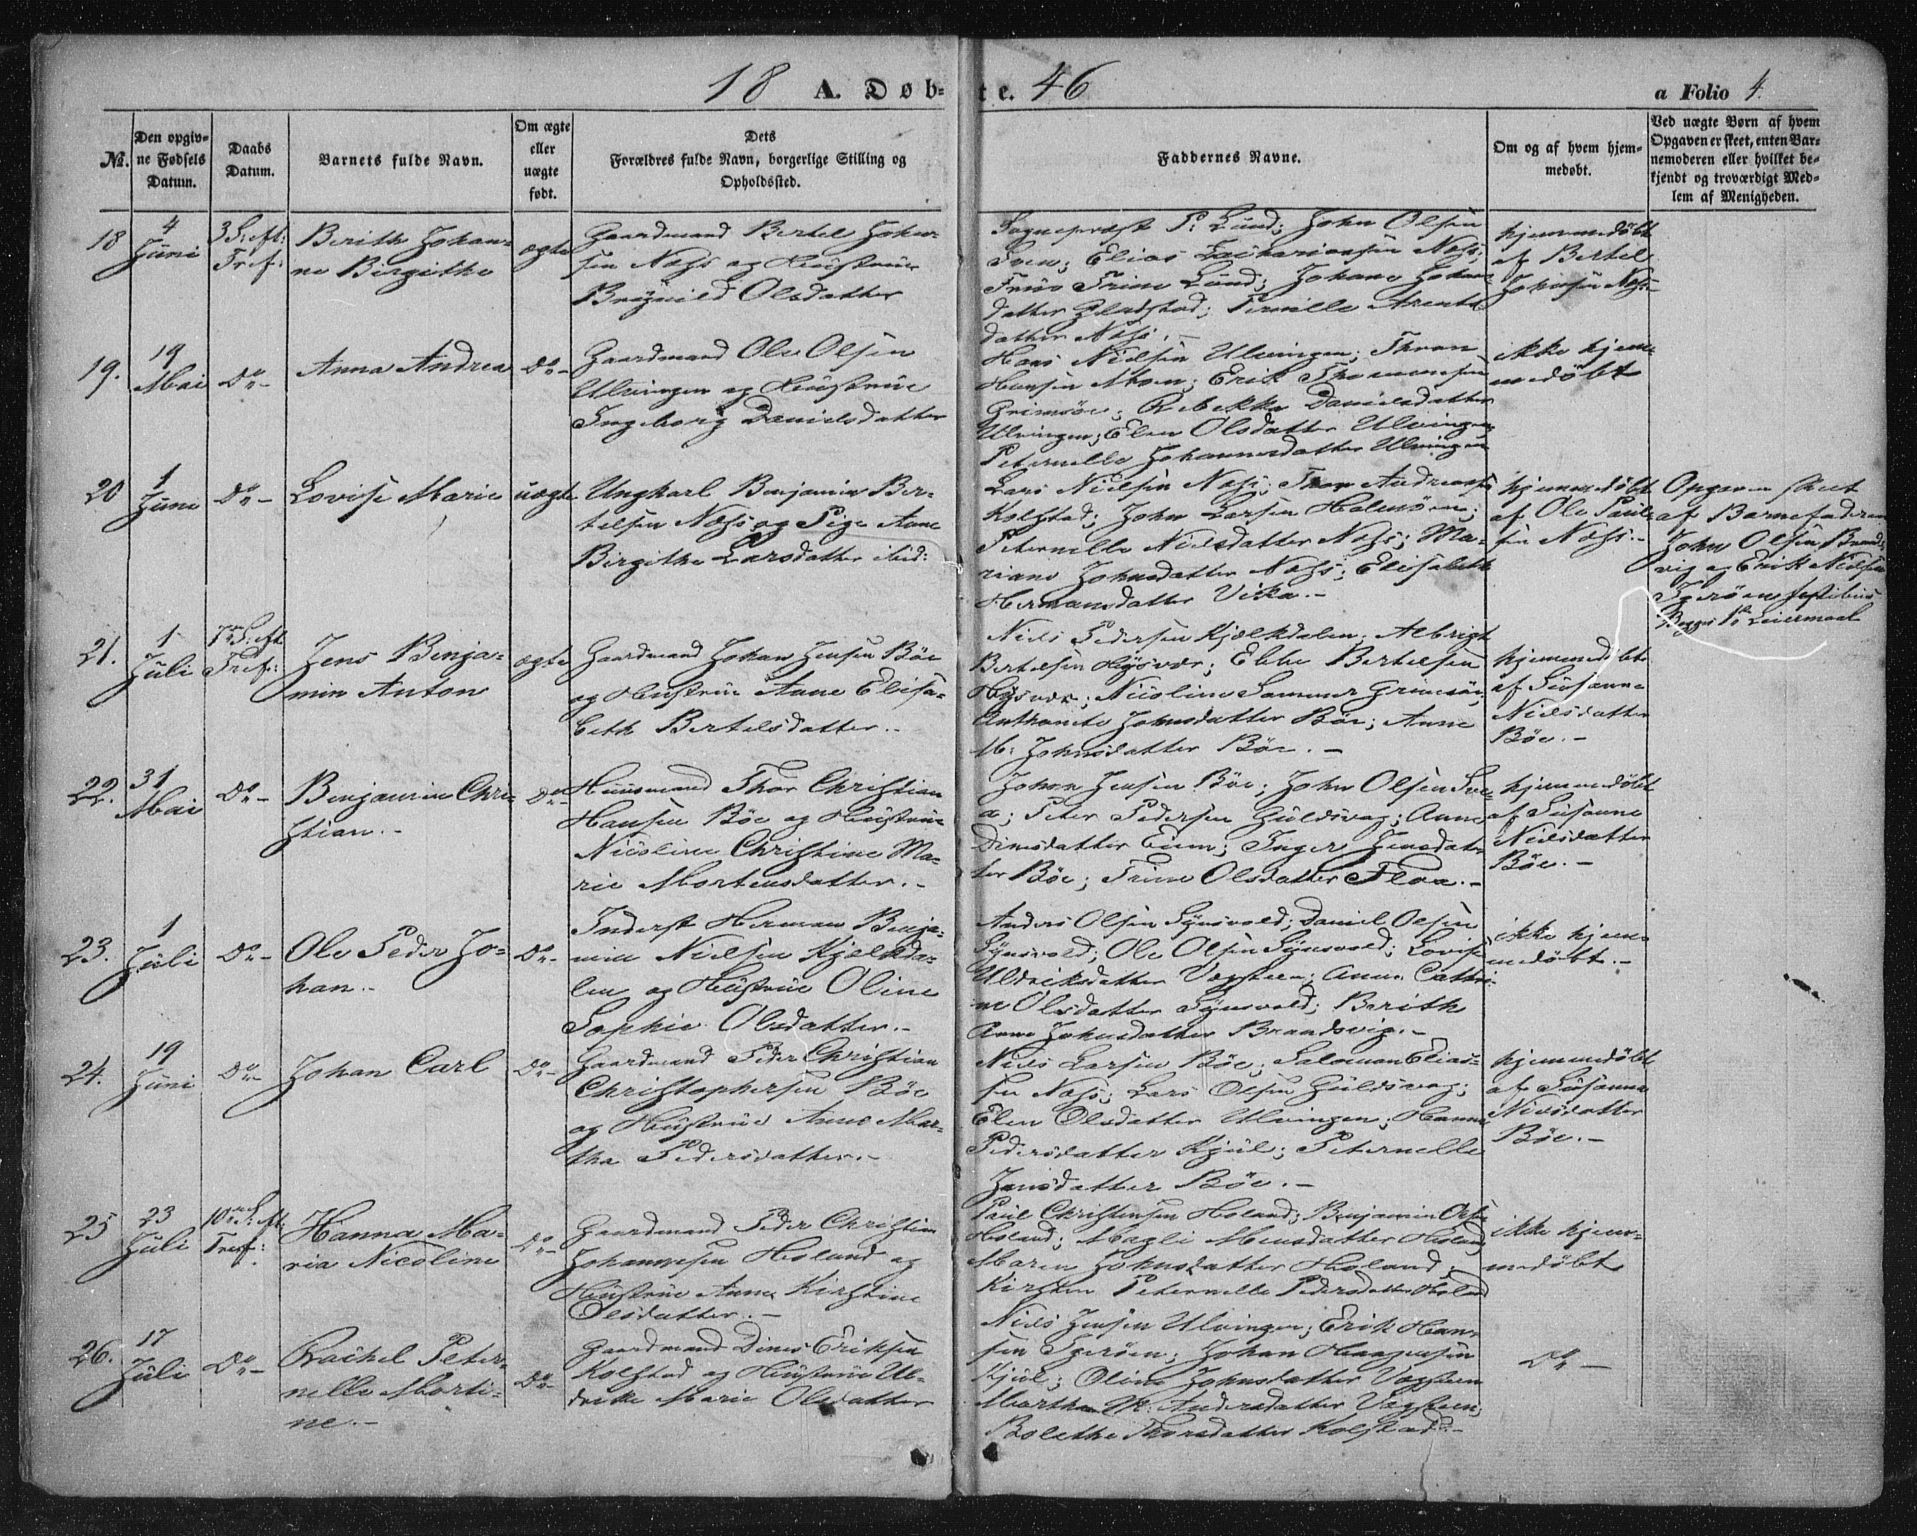 18 A. Døb- te. 46 a Folio 4.
No. Den opgiv-ne Fødsels Datum. Daabs Datum. Barnets fulde Navn. Om ægte eller uægte født. Dets Forældres fulde Navn, borgerlige Stilling og Opholdssted. Faddernes Navne. Om og af hvem hjem-medøbt. Ved uægte Børn af hvem Opgaven er skeet, enten Bar-nemoderen eller hvilket be-kjendt og troværdigt Med-lem af Menigheden.
18 4 Juni 3 S. eft: Tref:
Berith Johan-
ne Birgithe
ægte
Gaardmand Bertel John-
sen Næss og Hustrue
Brynild Olsdatter
Sognepræst P. Lund; John Olsen
Sven; Elias Zachariassen Næss;
Frue Trine Lund; Johane Johns-
datter Gladstad; Pernille Arents-
datter Næss. -
hjemmedöbt
af Bertel
Johnsen Næss-
19. 19 Mai Do-
Anna Andrea
Do-
Gaardmand Ole Olsen
Ulvingen og Hustrue
Ingeborg Danielsdatter
Hans Nielsen Ulvingen; Thron
Hansen Moen; Erik Thomassen
Grimsöe; Rebekka Danielsdatter
Ulvingen; Elen Olsdatter Ulvingen
Peternelle Johannesdatter Ulvingen
ikke hjem-
medöbt
20 1 Juni Do-
Lovise Marie
uægte
Ungkarl Benjamin Ber-
telsen Næss og Pige Anne
Birgithe Larsdatter ibid:
Lars Nielsen Næss; Thor Andreassen
Kolstad; John Larsen Holmöen;
Peternelle Nielsdatter Næss; Ma-
riane Johnsdatter Næss; Elisabeth
Hermansdatter Vika. -
hjemmedöbt
af Ole Paul-
sen Næss. -
Opgaven skeet
af Barnefaderen
John Olsen Brands-
vig og Erik Nielsen
Igeröen testibus
Begges 1ste Leiermaal
21. 1 Juli 7de S. eft Tref:
Jens Benja-
min Anton
ægte
Gaardmand Johan Jensen Böe
og Hustrue Anne Elisa-
beth Bertelsdatter. -
Niels Pedersen Kjælkdalen; Albrigt
Bertelsen Hysvær; Ebbe Bertelsen
Hysvær; Nicoline Grimsöe;
Anthonete Johnsdatter Böe; Anne
M: Johnsdatter Böe. -
hjemmedöbt
af Susanne
Nielsdatter
Böe. -
22. 31 Mai Do-
Benjamin Chri-
stian. -
Do-
Huusmand Thor Christian
Hansen Böe og Hustrue
Nicoline Christine Ma-
rie Mortensdatter. -
Johan Jensen Böe; John Olsen Sve-
a; Peter Pedersen Guldsvag; Anne
Dinesdatter Eium; Inger Jensdat-
ter Böe; Trine Olsdatter Floa. -
hjemmedöbt
af Susanne
Nielsdatter
Böe. -
23. 1 Juli Do-
Ole Peder Jo-
han. -
Do-
Inderst Herman Benja-
min Nielsen Kjælkda-
len og Hustrue Oline
Sophie Olsdatter. -
Anders Olsen Synsvold; Daniel Olsen
Synsvold; Ole Olsen Synsvold; Lovise
Uldriksdatter Vegsteen; Anne Cathri-
ne Olsdatter Synsvold; Berith
Anne Johnsdatter Brandsvig. -
ikke hjem-
medöbt. -
24. 19 Juni Do-
Johan Carl
Do-
Gaardmand Peder Christian
Christophersen Böe
og Hustrue Anne Mar-
tha Pedersdatter. -
Niels Larsen Böe; Salomon Elias-
sen Næss; Lars Olsen Guldsvag;
Elen Olsdatter Ulvingen; Hanna
Pedersdatter Kjul; Peternelle
Jensdatter Böe. -
hjemmedöbt
af Susanne
Nielsdatter
Böe. -
25 23 Juli 10de S. eft: Tref:
Hanna Ma-
ria Nicoline
Do-
Gaardmand Peder Christian
Johannesen Höland og
Hustrue Anne Kirstine
Olsdatter. -
Paul Christensen Höland; Benjamin Olsen
Höland; Magli Monsdatter Höland
Maren Johnsdatter Höland;
Kirsten Peternelle Pedersdatter Höland
ikke hjem-
medöbt
26. 17 Juli Do-
Rachel Peter-
nelle Marti-
ne. -
Do-
Gaardmand Dines Eriksen
Kolstad og Hustrue Ul-
drikke Marie Olsdatter
Niels Jensen Ulvingen; Erik Han-
sen Igeröen; Johan Haagensen
Kjul; Oline Johnsdatter Vegsteen
Martha M: Andersdatter Vegsteen;
Bolethe Thorsdatter Kolstad. -
Do-